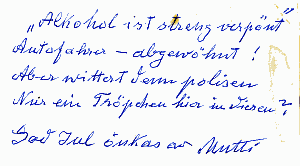 „Alkohol ist streng verpönt"
Autofahrer – abgewöhnt!
Aber wittert denn polisen
Nur ein Tröpchen hier in diesen?
God Jul önkas av Mutti